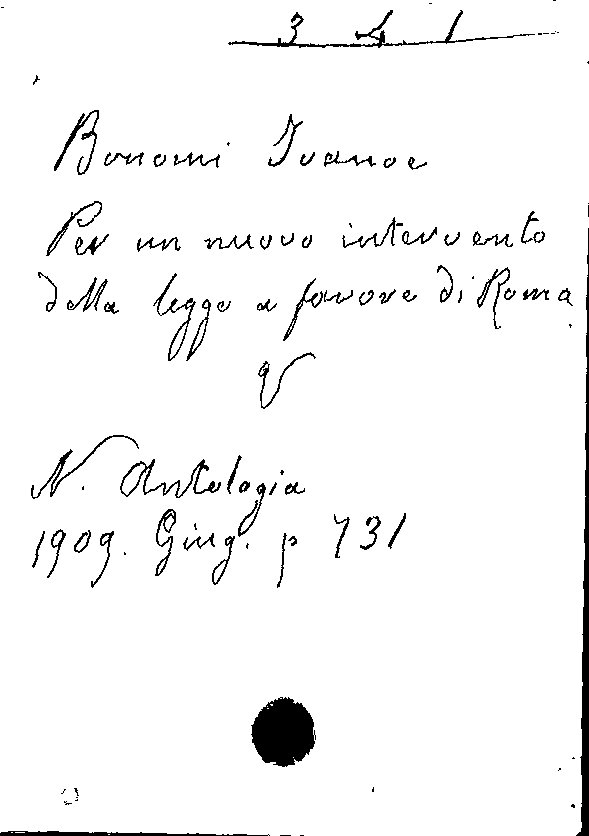 3 4 1
Bonomi Ivanoe
Per un nuovo intervento
della legge a favore di Roma
V
N. Antologia
1909. Giug. p 731